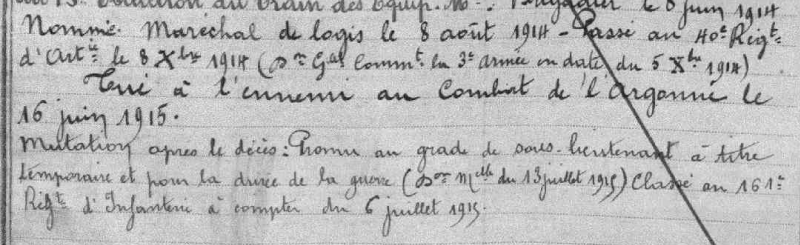 Escadron du Train des Equip. Mil. Brigadier le 8 juin 1914
Nommé Maréchal de logis le 8 août 1914 - Passé au 40e Régt
d'Artie le 8 Xbre 1914 (Don Gal Commt la 3e armée en date du 5 Xbre 1914)
Tué à l'ennemi au Combat de l'Argonne le
16 juin 1915.
Mutation après le décès : Promu au grade de sous-lieutenant à titre
temporaire et pour la durée de la guerre (Don Melle du 13 juillet 1915) Classé au 161e
Régt d'Infanterie à compter du 6 juillet 1915.